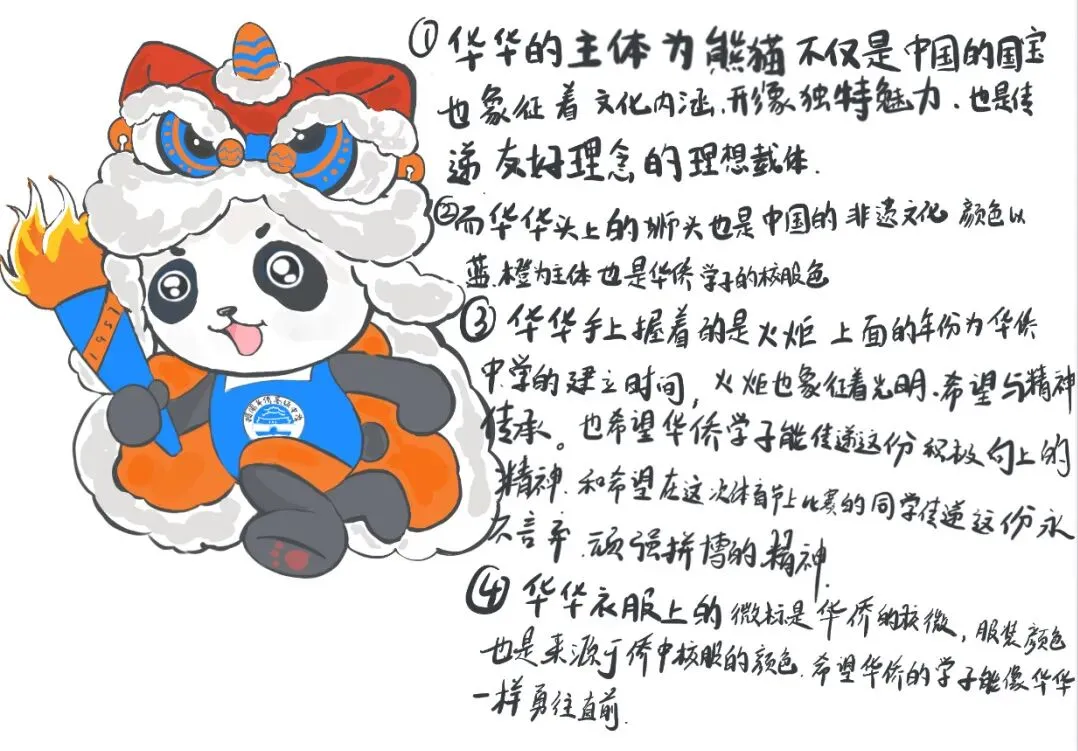 ①华华的主体为熊猫不仅是中国的国宝
也象征着文化内涵、形像独特魅力.也是传
递友好理念的理想载体.
②而华华头上的狮头也是中国的非遗文化颜色以
蓝.橙为主体也是华侨学子的校服色
③华华手上握着的是火炬上面的年份为华侨
中学的建立时间，火炬也象征着光明.希望与精神
传承。也希望华侨学子能传递这份积极向上的
精神.和希望在这次体育节上比赛的同学传递这份永
不言弃.顽强拼搏的精神.
④华华衣服上的微标是华侨的校微，服装颜色
也是来源于侨中校服的颜色.希望华侨的学子能像华华
一样勇往直前.
1951